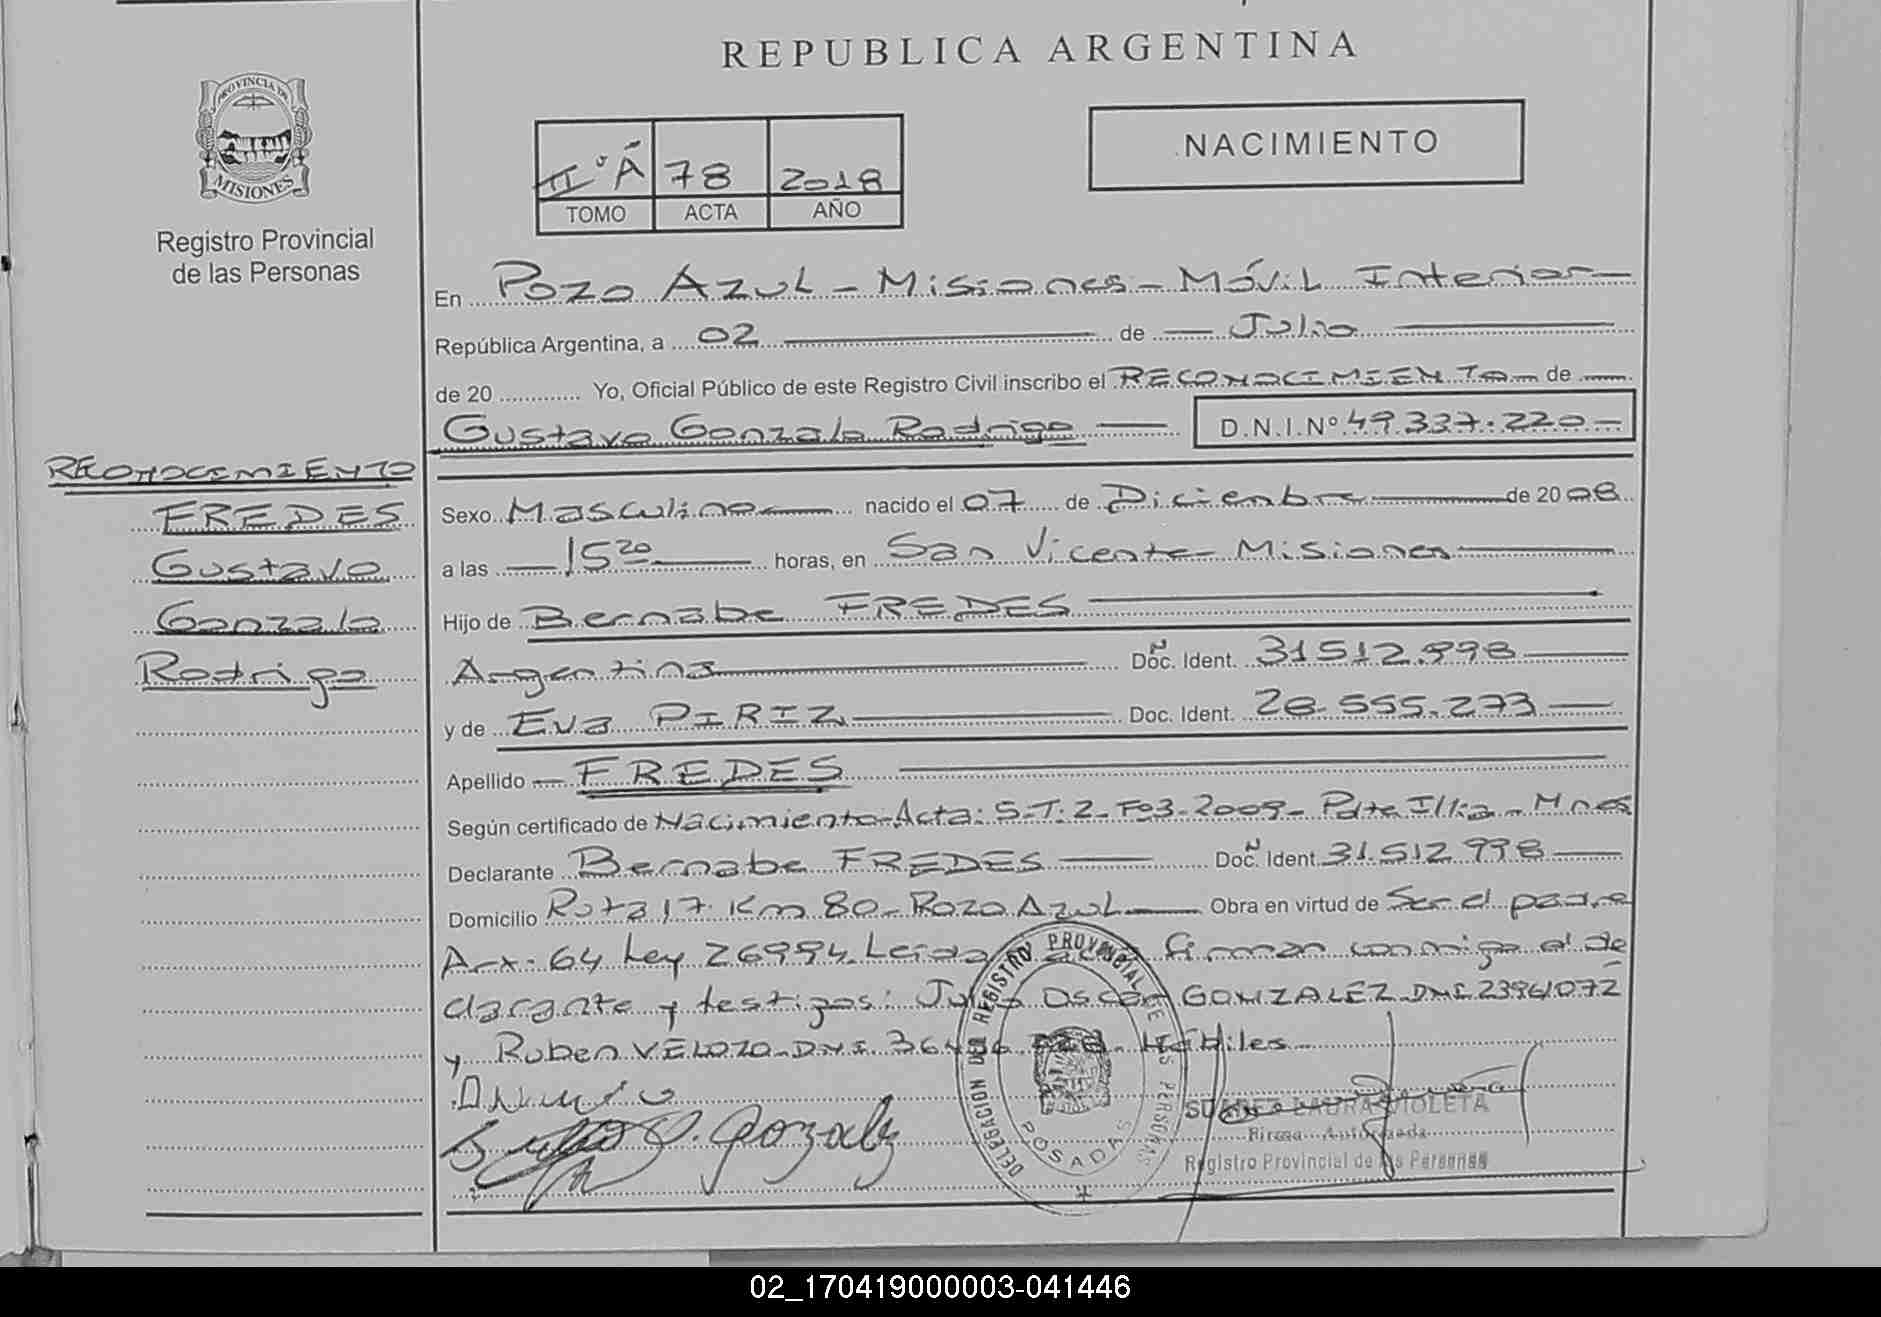 REPUBLICA ARGENTINA
PROVINCIA DE
MISIONES
Registro Provincial
de las Personas
IIº A 78 2018
TOMO ACTA AÑO
NACIMIENTO
En Pozo Azul - Misiones - Móvil Interior
República Argentina, a 02 de Julio
de 20 Yo, Oficial Público de este Registro Civil inscribo el RECONOCIMIENTO de
Gustavo Gonzalo Rodrigo D.N.I.Nº 49.337.220
RECONOCIMIENTO
FREDES
Gustavo
Gonzalo
Rodrigo
Sexo Masculino nacido el 07 de Diciembre de 2008
a las 15 20 horas, en San Vicente - Misiones
Hijo de Bernabe FREDES
Argentina Doc. Ident. 31512.998
y de Eva PIRIZ Doc. Ident. 28.555.273
Apellido FREDES
Según certificado de Nacimiento - Acta: 5-T: 2- Fº3-2009- Pdte Illia - Mnes
Declarante Bernabe FREDES Doc. Ident. 31.512.998
Domicilio Ruta 17 Km 80 - Pozo Azul Obra en virtud de Ser el padre
Art. 64 Ley 26994. Leida firman conmigo el de
clarante y testigos: Julio Oscar GONZALEZ DNI 23961072
y Ruben VELOZO - DNI 36 Hábiles
Julio O. Gonzalez
DELEGACION DEL REGISTRO PROVINCIAL DE LAS PERSONAS
POSADAS
SUAREZ LAURA VIOLETA
Firma Autorizada
Registro Provincial de las Personas
02_170419000003-041446